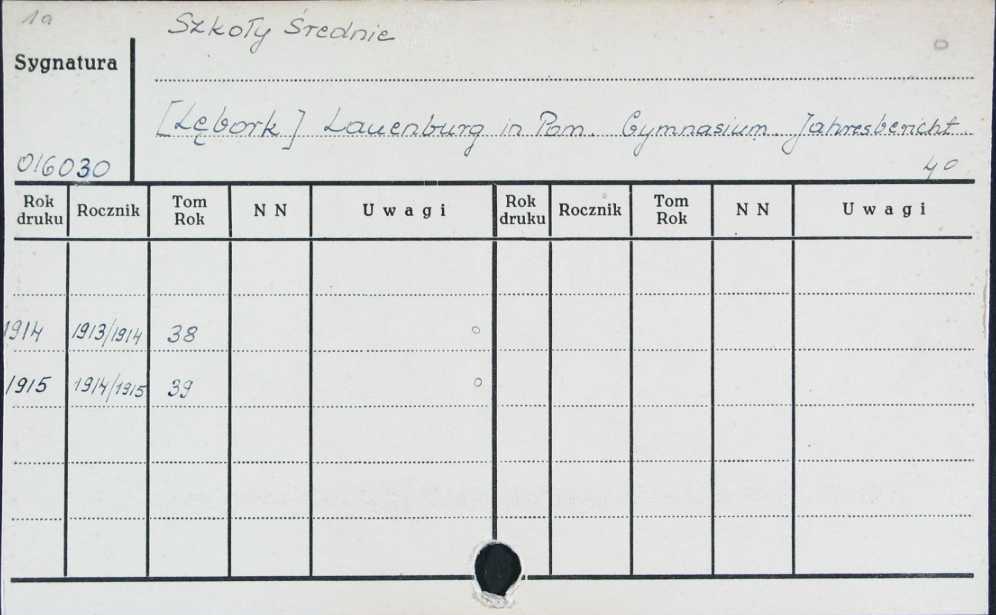 1a
Szkoły Średnie
Sygnatura
[Lębork] Lauenburg in Pom. Gymnasium. Jahresbericht
016030
4o
Rok druku Rocznik Tom Rok N N Uwagi Rok druku Rocznik Tom Rok N N Uwagi
1914 1913/1914 38 o
1915 1914/1915 39 o